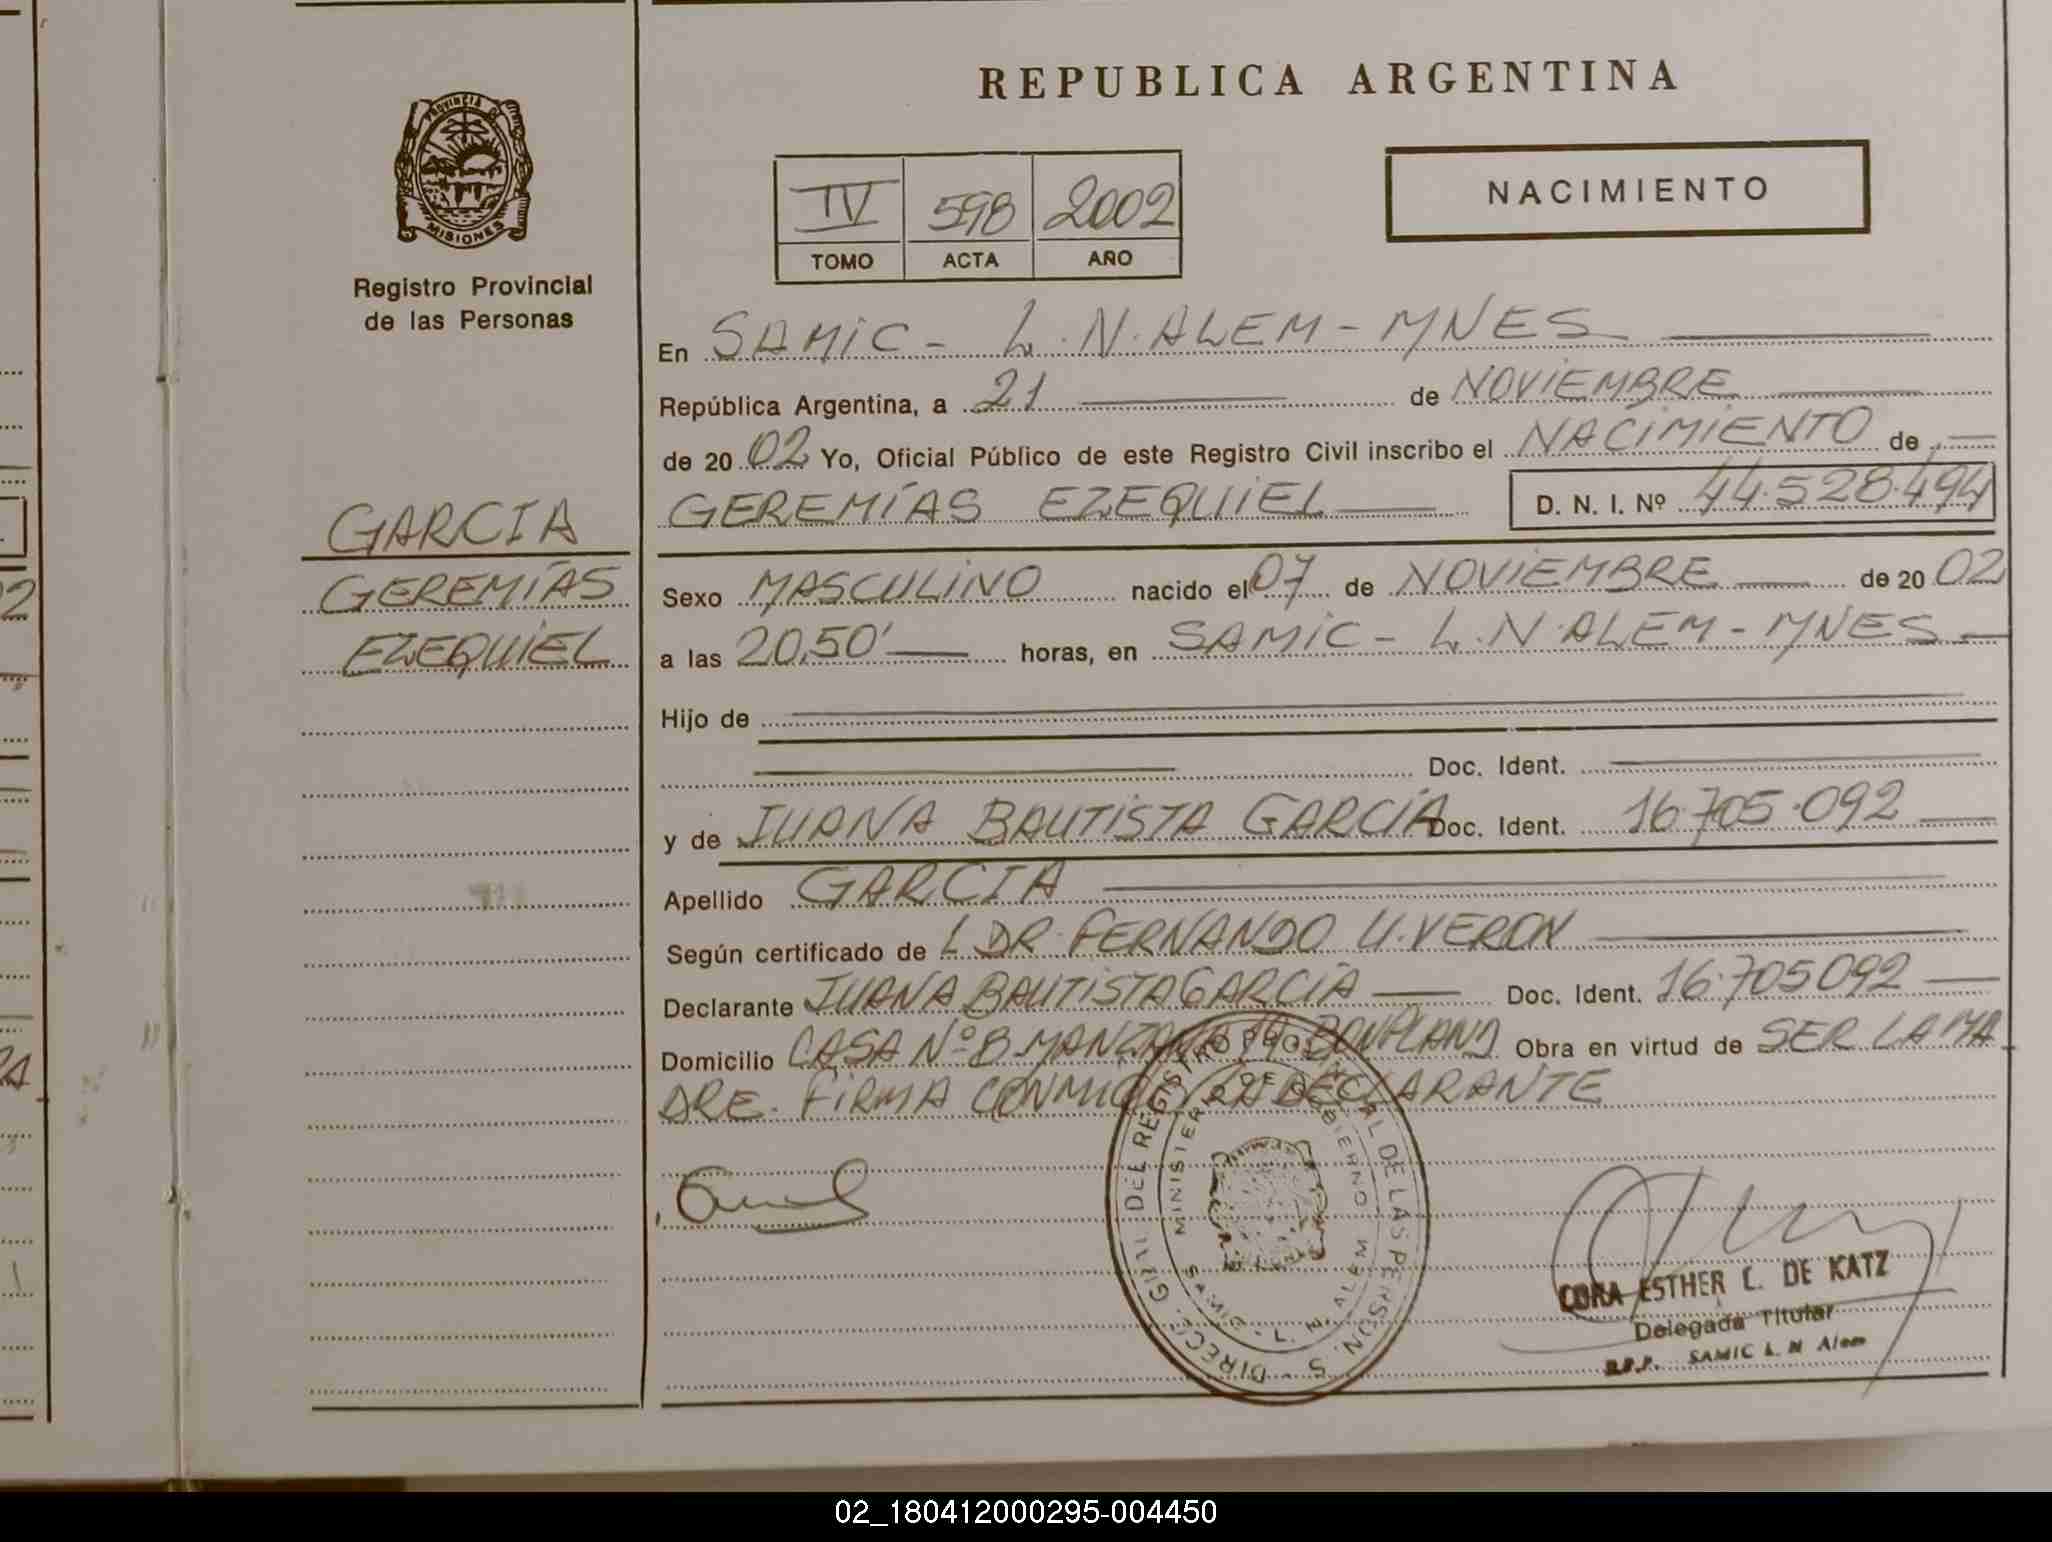 REPUBLICA ARGENTINA
PROVINCIA DE
MISIONES
Registro Provincial
de las Personas
IV 598 2002
TOMO ACTA AÑO
NACIMIENTO
En SAMIC - L.N.ALEM - MNES
República Argentina, a 21 de NOVIEMBRE
de 20 02 Yo, Oficial Público de este Registro Civil inscribo el NACIMIENTO de
GEREMÍAS EZEQUIEL D. N. I. Nº 44.528.494
GARCIA
GEREMÍAS
EZEQUIEL
Sexo MASCULINO nacido el 07 de NOVIEMBRE de 20 02
a las 20,50' horas, en SAMIC - L.N.ALEM - MNES
Hijo de
Doc. Ident.
y de JUANA BAUTISTA GARCÍA Doc. Ident. 16.705.092
Apellido GARCIA
Según certificado de L DR. FERNANDO U. VERON
Declarante JUANA BAUTISTA GARCIA Doc. Ident. 16.705092
Domicilio CASA Nº 8 MANZANA 14 BONPLAND Obra en virtud de SER LA MA
DRE. FIRMA CONMIGO LA DECLARANTE
DIRECC. GRAL DEL REGISTRO PROVINCIAL DE LAS PERSON. S
MINISTERIO DE GOBIERNO
SAMIC - L. N. ALEM
CORA ESTHER L. DE KATZ
Delegada Titular
R.P.P. SAMIC L. N Alem
02_180412000295-004450